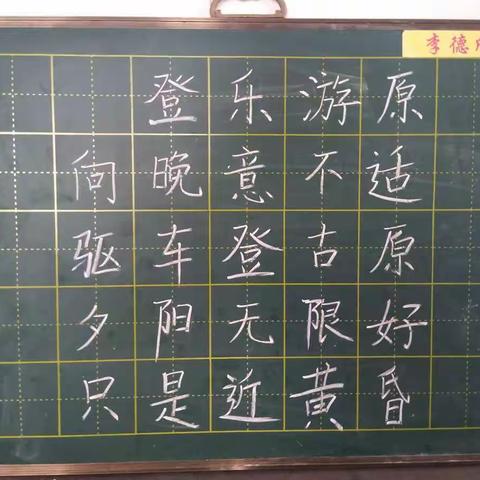 李德
登乐游原
向晚意不适
驱车登古原
夕阳无限好
只是近黄昏